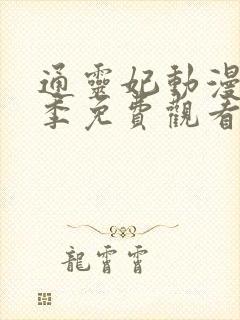 通靈妃動漫
季免費觀看
龍霄霄